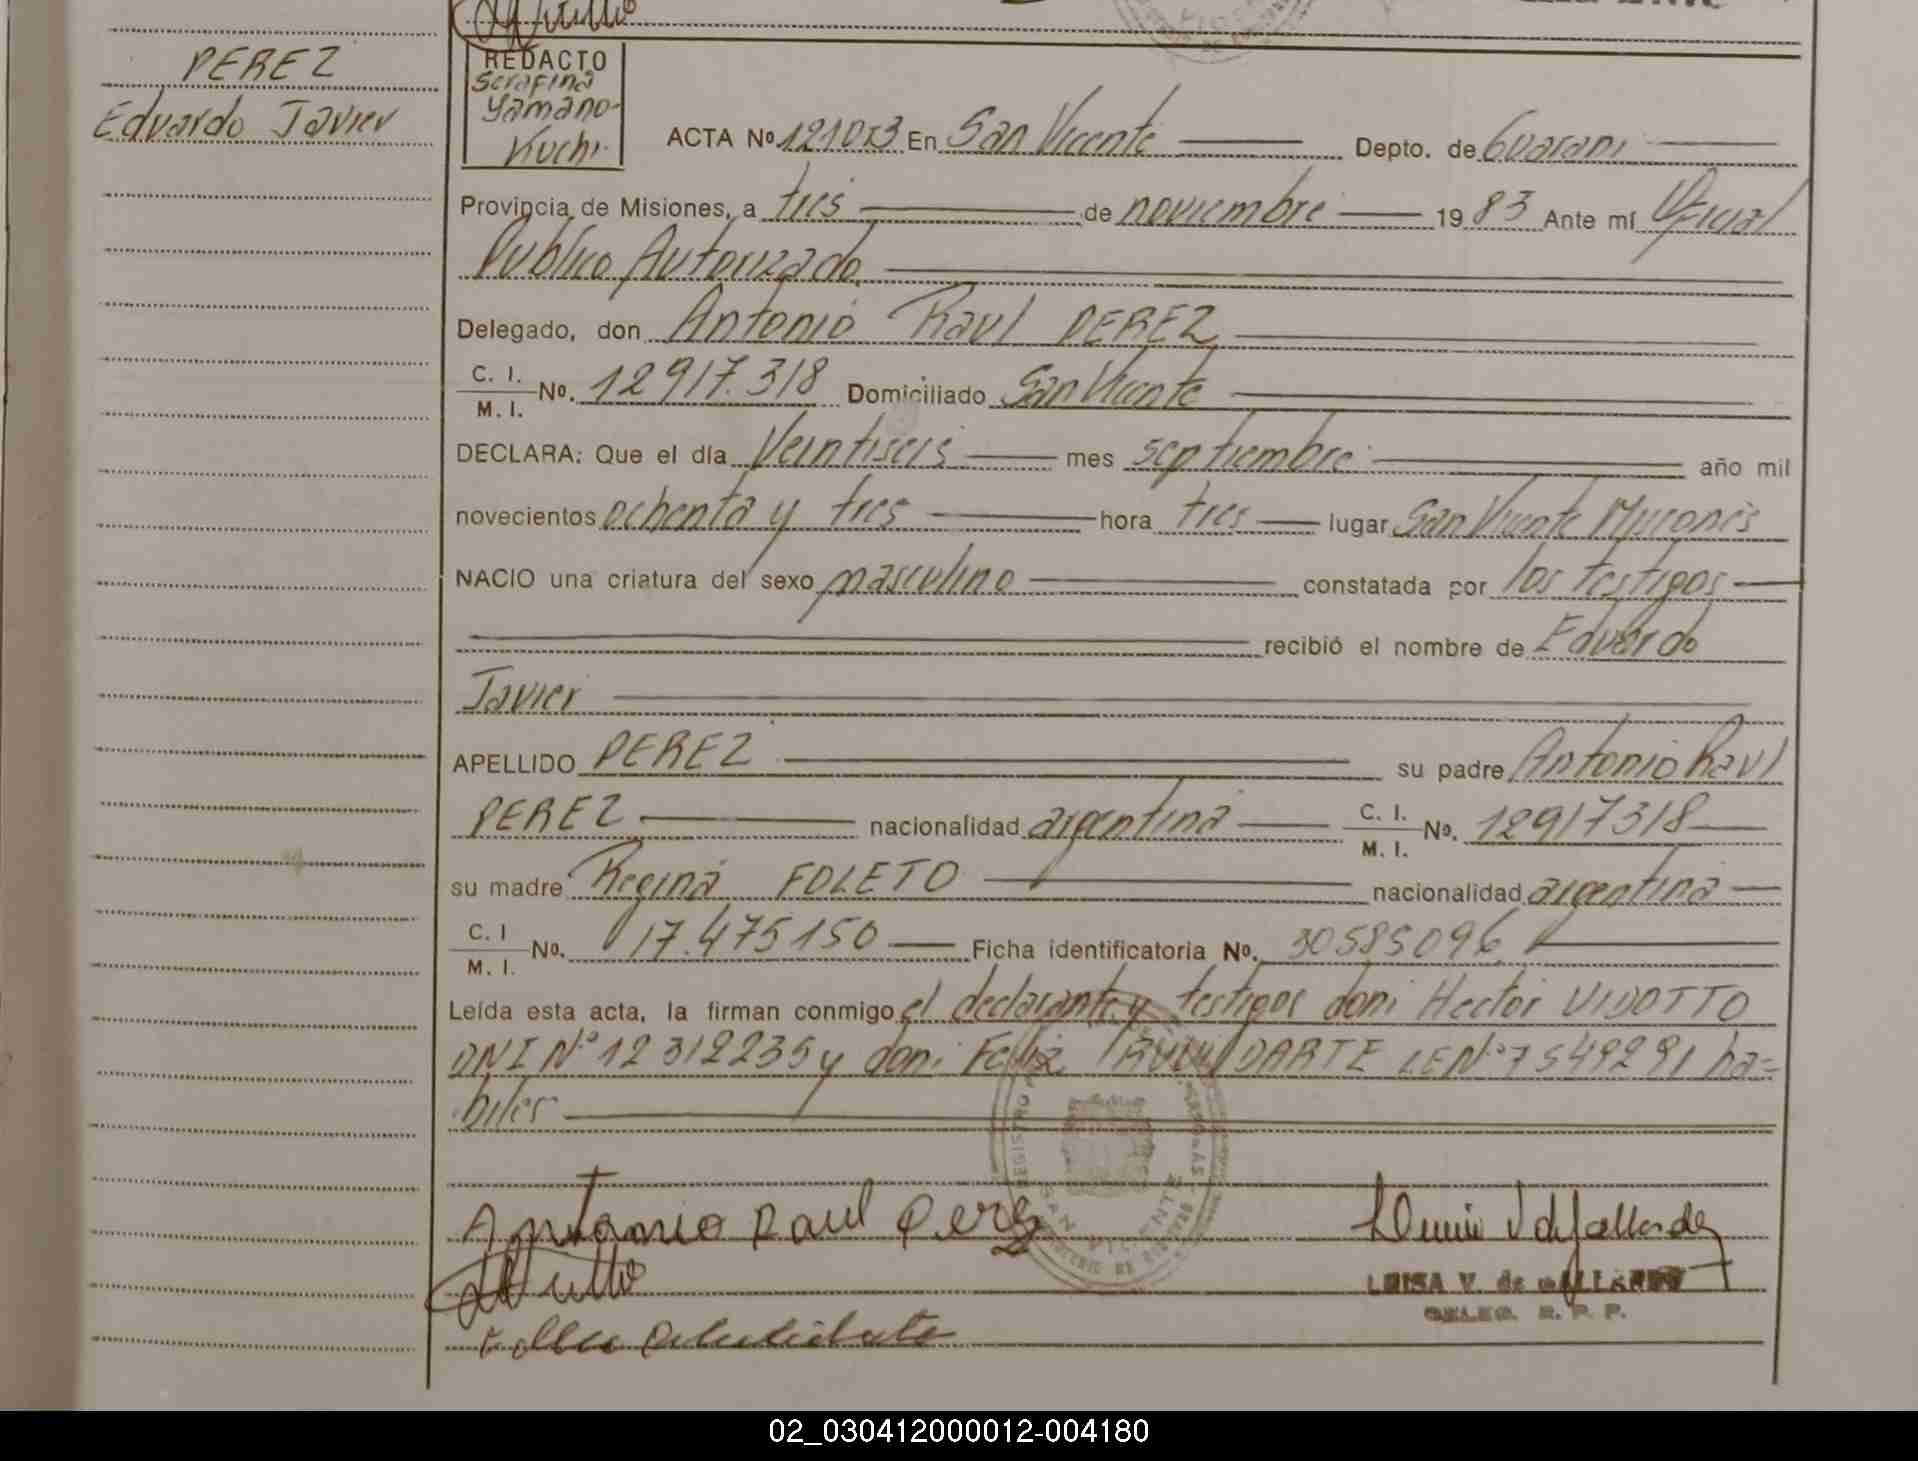 PEREZ
Eduardo Javier
REDACTO
Serafina
Yamano-
Kuchi
ACTA Nº 121053 En San Vicente Depto. de Guarani
Provincia de Misiones, a tres de noviembre 1983 Ante mí Oficial
Publico Autorizado
Delegado, don Antonio Raul PEREZ
C. I. / M. I. Nº. 12917.318 Domiciliado San Vicente
DECLARA: Que el día Veintiseis mes septiembre año mil
novecientos ochenta y tres hora tres lugar San Vicente Misiones
NACIO una criatura del sexo masculino constatada por los testigos
recibió el nombre de Eduardo
Javier
APELLIDO PEREZ su padre Antonio Raul
PEREZ nacionalidad argentina C. I. / M. I. Nº. 12917318
su madre Regina FOLETO nacionalidad argentina
C. I / M. I. Nº. 17.475150 Ficha identificatoria Nº. 30585096
Leída esta acta, la firman conmigo el declarante y testigos don: Hector VIDOTTO
DNI Nº 12312235 y don: Feliz DARTE LE Nº 7549291 ha=
biles
Antonio Raul Perez
LUISA V. de GALLARDO
DELEG. R. P. P.
REGISTRO
SAN VICENTE
02_030412000012-004180